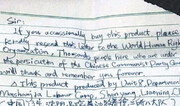 Sir:
If you occasionally buy this product, please
kindly resend this letter to the World Human Right
Organization. Thousands people here who are under
the persecution of the Chinese Communist Party Gover
will thank and remember you forever.
This product produced by Unit 8, Department
Masanjia Labour Camp, Shenyang, Liaoning,